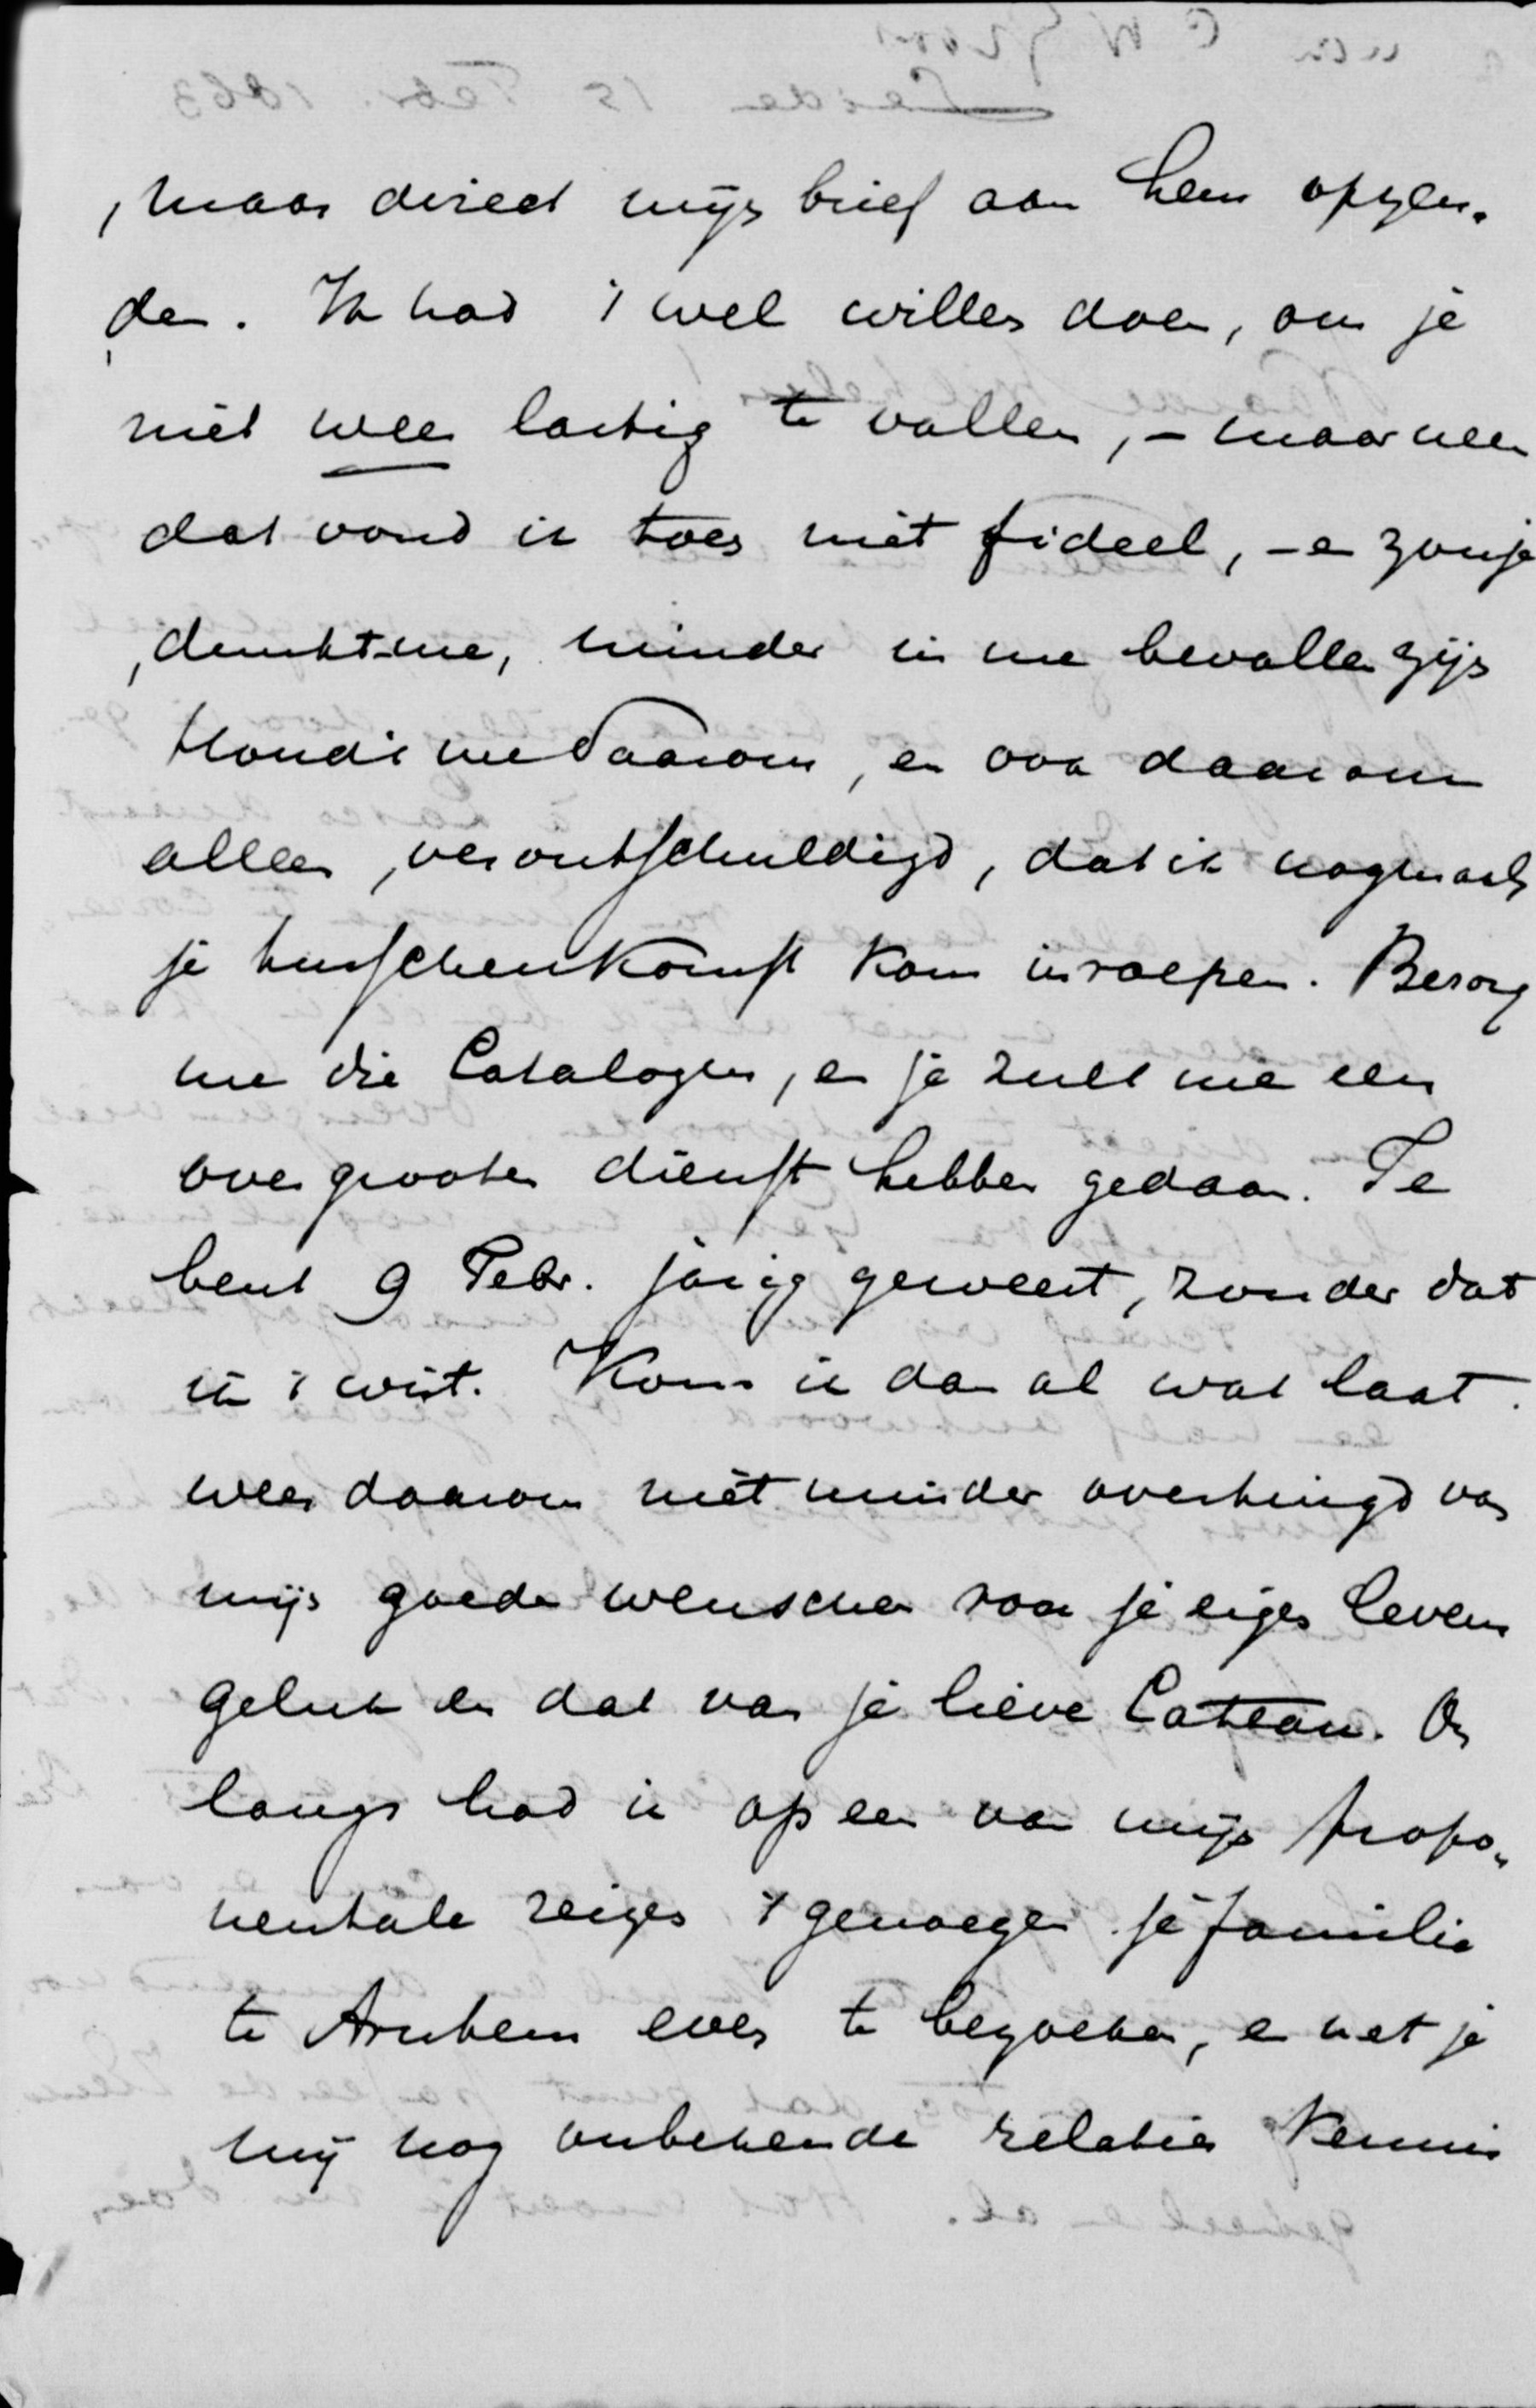 , maar direct mijn brief aan hem opzen„
den. Ik had 't wel willen doen, om je
niet weer lastig te vallen, – maar neen
dat vond ik toch niet fideel, – en zou je
, dunkt me, minder in me bevallen zijn
Houdt me daarom, en ook daarom
alleen, verontschuldigd, dat ik nogmaals
je tusschenkomst kom inroepen. Bezorg
me die Catalogus, en je zult me een
overgrooten dienst hebben gedaan. Je
bent 9 Febr. jarig geweest, zonder dat
ik 't wist. Kom ik dan al wat laat.
wees daarom niet minder overtuigd van
mijn goede wenschen voor je eigen levens
geluk en dat van je lieve Cateau. On
langs had ik op een van mijn propo„
nentale reizen 't genoegen je familie
te Arnhem even te bezoeken, en met je
mij nog onbekende relatien kennis